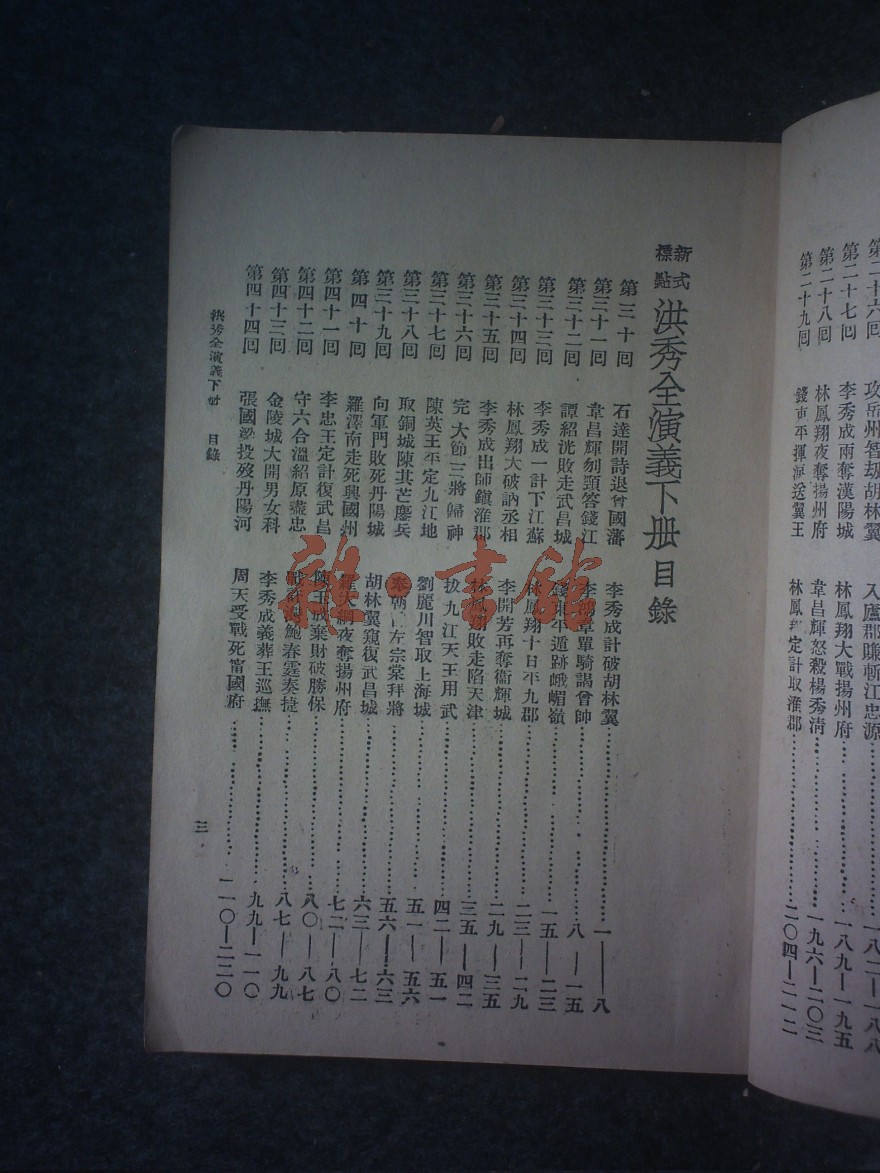 第二十六回 攻岳州智劫胡林翼 入廬郡賺斬江忠源 一八二—一八八
第二十七回 李秀成兩奪漢陽城 林鳳翔大戰揚州府 一八九—一九五
第二十八回 林鳳翔夜奪揚州府 韋昌輝怒殺楊秀清 一九六—二〇三
第二十九回 錢東平揮淚送翼王 林鳳翔定計取淮郡 二〇四—二一二
新式標點 洪秀全演義下册目錄
第三十回 石達開詩退曾國藩 李秀成計破胡林翼 一—八
第三十一回 韋昌輝刎頸答錢江 李 單騎謁曾帥 八—一五
第三十二回 譚紹洸敗走武昌城 錢東平遁跡峨嵋嶺 一五—二三
第三十三回 李秀成一計下江蘇 林鳳翔十日平九郡 二三—二九
第三十四回 林鳳翔大破訥丞相 李開芳再奪衞輝城 二九—三五
第三十五回 李秀成出師鎮淮郡 林鳳翔敗走陷天津 三五—四二
第三十六回 完大節三將歸神 拔九江天王用武 四二—五一
第三十七回 陳英王平定九江地 劉麗川智取上海城 五一—五六
第三十八回 取銅城陳其芒鏖兵 左宗棠拜將 五六—六三
第三十九回 向軍門敗死丹陽城 胡林翼窺復武昌城 六三—七二
第四十回 羅澤南走死興國州 羅大綱夜奪揚州府 七二—八〇
第四十一回 李忠王定計復武昌 陳玉成棄財破勝保 八〇—八七
第四十二回 守六合溫紹原盡忠 鮑春霆奏捷 八七—九九
第四十三回 金陵城大開男女科 李秀成義葬王巡撫 九九—一一〇
第四十四回 張國樑投歿丹陽河 周天受戰死甯國府 一一〇—二二〇
洪秀全演義下册 目錄
三
雜·書館